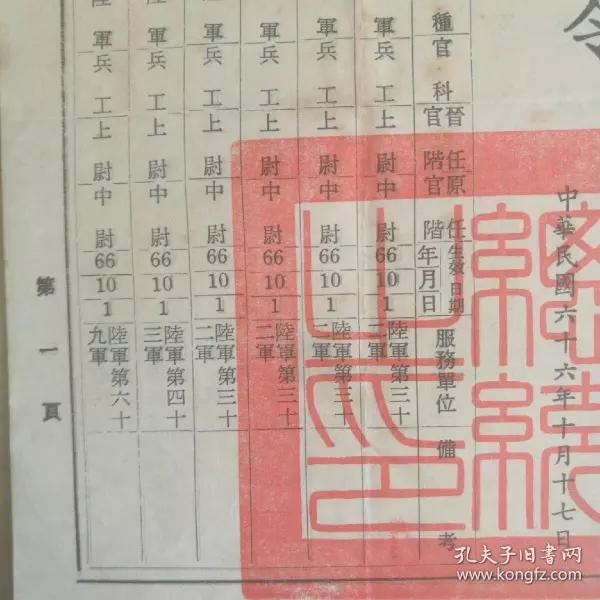 令
中華民國六十六年十月十七日
總統
之印
種
官科
晉任
官階
原任
官階
生效日期
年月日
服務單位
備考
軍 兵工 上尉 中尉 66 10 1 陸軍第三十
二軍
軍 兵工 上尉 中尉 66 10 1 陸軍第三十
二軍
軍 兵工 上尉 中尉 66 10 1 陸軍第三十
二軍
軍 兵工 上尉 中尉 66 10 1 陸軍第三十
二軍
陸軍 兵工 上尉 中尉 66 10 1 陸軍第四十
三軍
陸軍 兵工 上尉 中尉 66 10 1 陸軍第六十
九軍
第一頁
孔夫子旧書网
www.kongfz.com